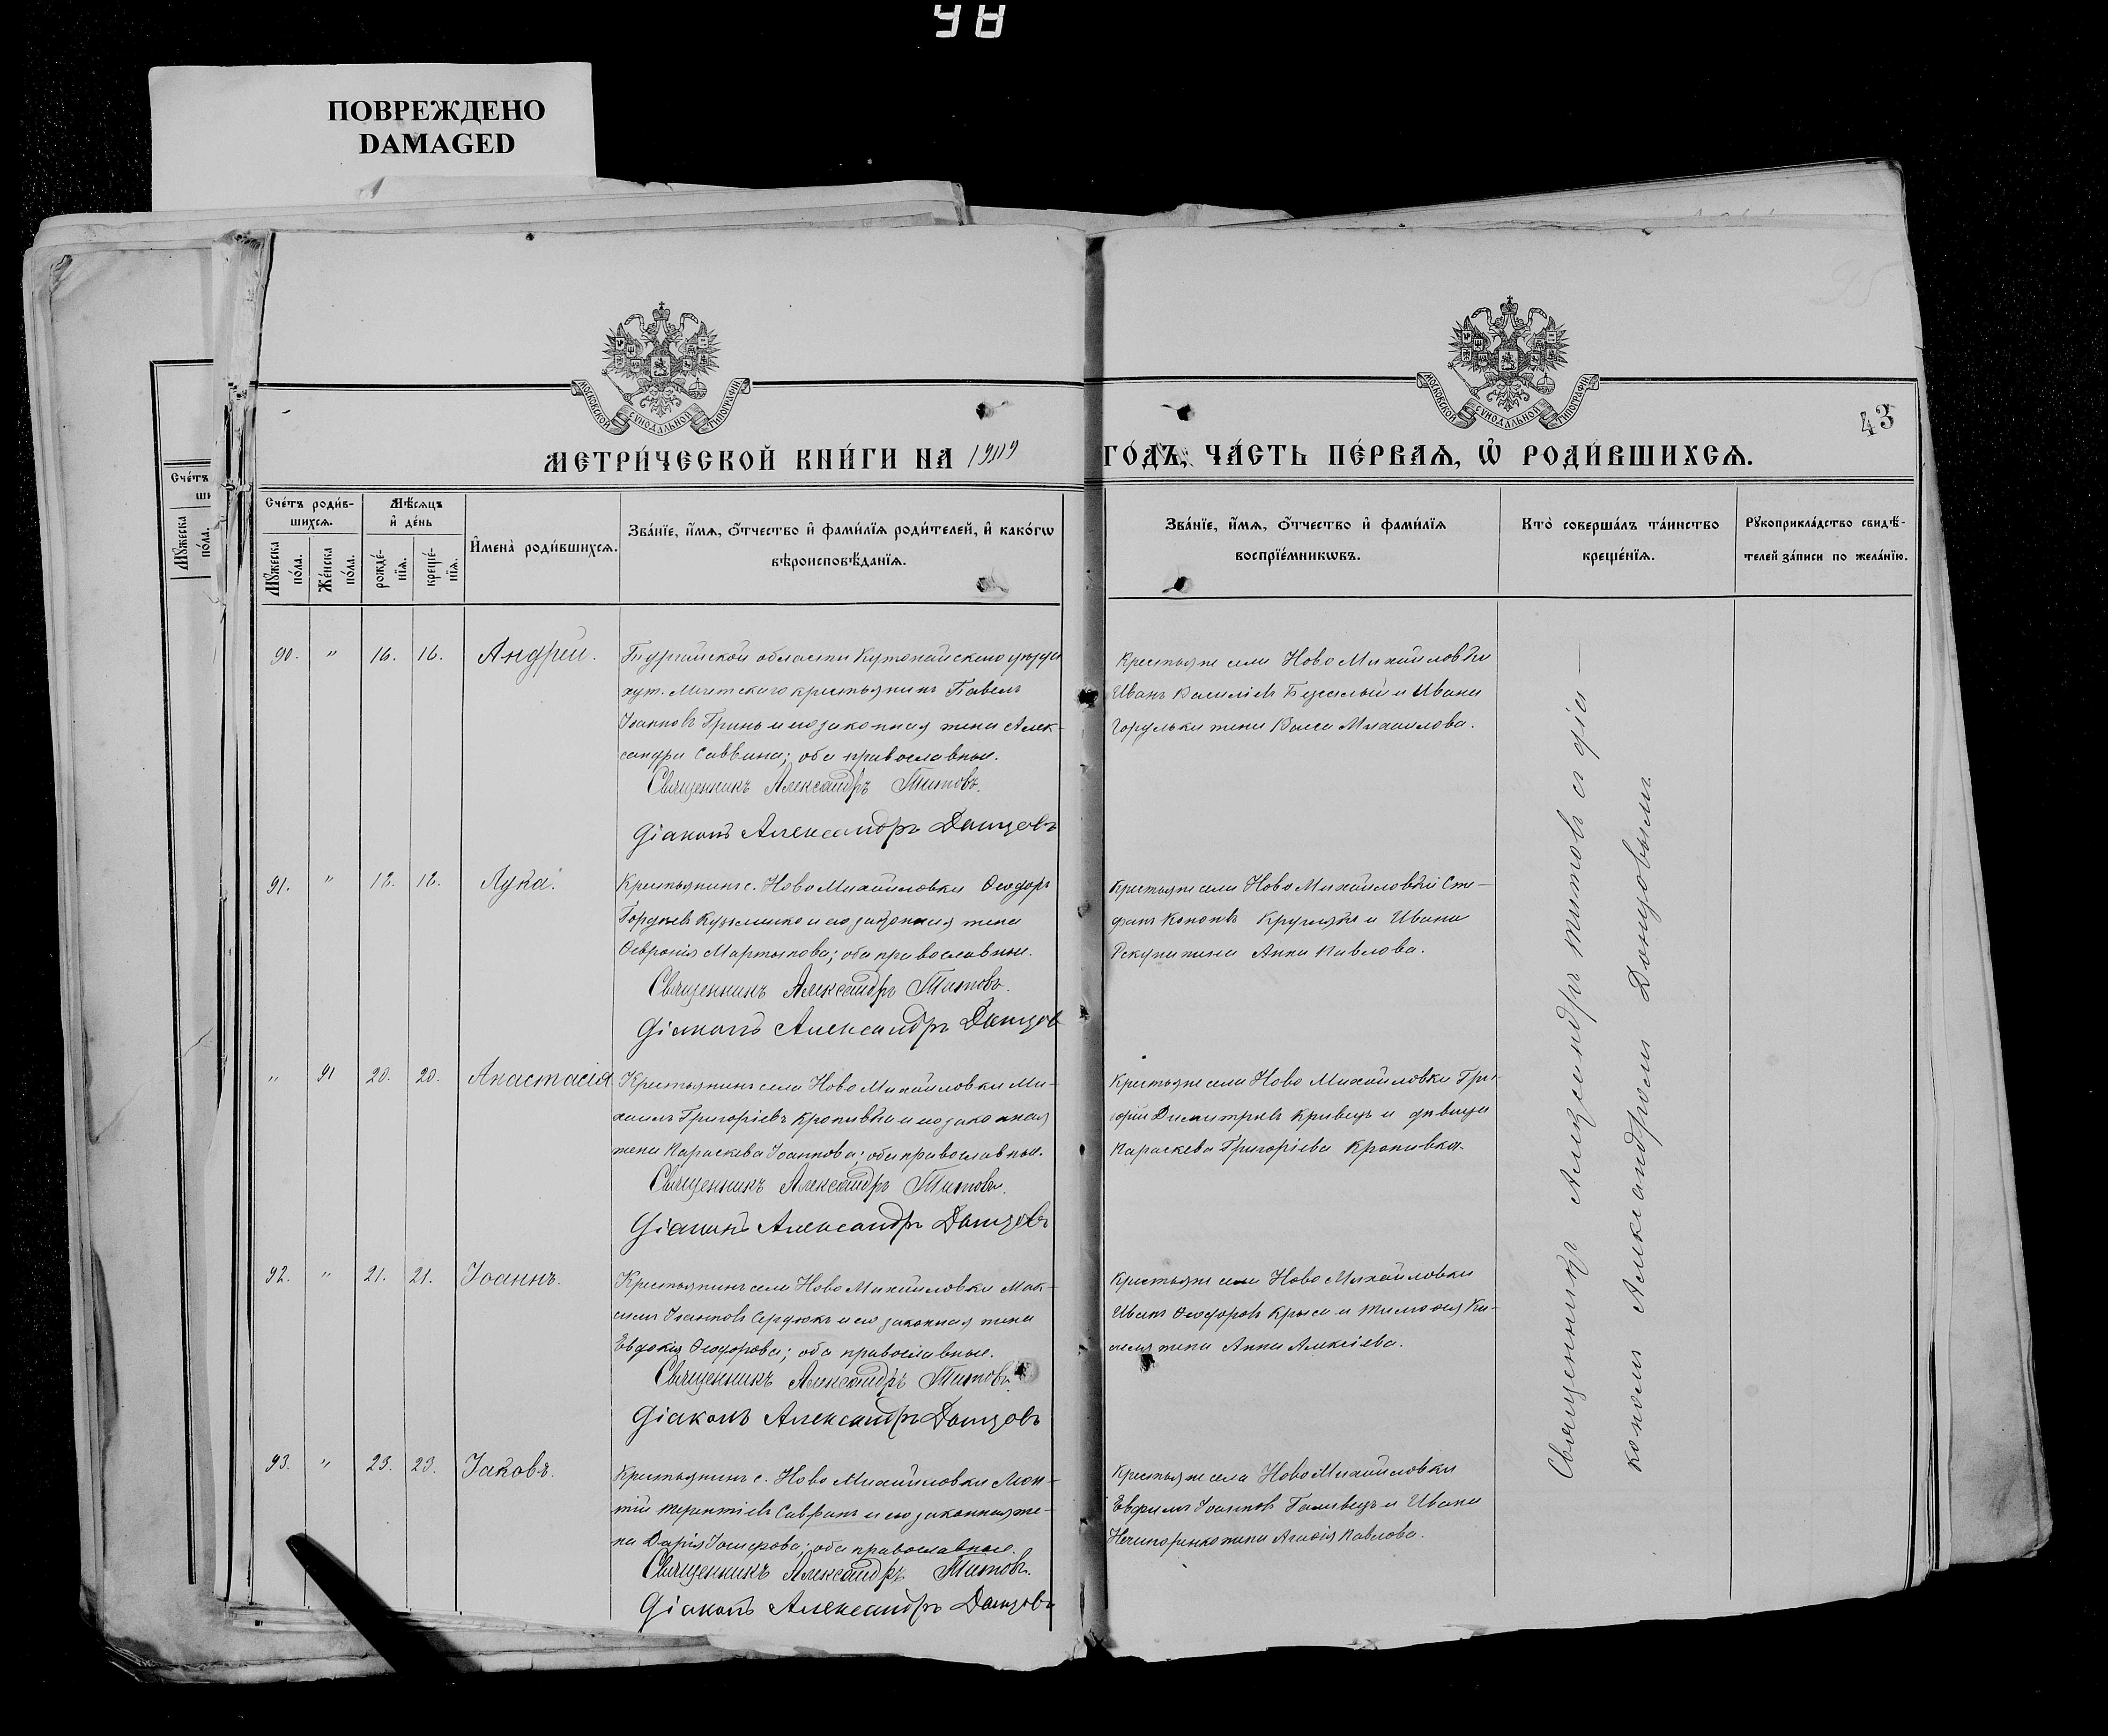 98
ПОВРЕЖДЕНО
DAMAGED
МОСКОВСКОЙ СУНОДАЛЬНОЙ ТИПОГРАФІИ
МОСКОВСКОЙ СУНОДАЛЬНОЙ ТИПОГРАФІИ
43
МЕТРИ́ЧЕСКОЙ КНИ́ГИ НА 1909 ГО́ДЪ, ЧА́СТЬ ПЕ́РВАѦ, Ѡ҆ РОДИ́ВШИХСѦ.
Сче́тъ роди́вшихсѧ.
Мꙋ́жеска по́ла.
Же́нска по́ла.
Мѣ́сѧцъ и҆ де́нь
рожде́нїѧ.
креще́нїѧ.
И҆мена̀ роди́вшихсѧ.
Зва́нїе, и҆́мѧ, ѻ҆́тчество и҆ фами́лїѧ роди́телей, и҆ како́гѡ
вѣроисповѣ́данїѧ.
Зва́нїе, и҆́мѧ, ѻ҆́тчество и҆ фами́лїѧ
воспрїе́мникѡвъ.
Кто̀ соверша́лъ та́инство
креще́нїѧ.
Рꙋкоприкла́дство свидѣ́-
телей за́писи по жела́нїю.
90. " 16. 16. Андрей.
Тургайской области Кустанайского уѣзда
хут. крестьянинъ Павелъ
Іоанновъ Гринь и его законная жена Алек-
сандра Саввина; оба православные.
Священникъ Александръ Титовъ.
Діаконъ Александръ Донцовъ
Крестьяне села Ново Михайловки
Иванъ Василіевъ и Ивана
жена Михаилова.
91. " 18. 18. Лука.
Крестьянинъ с. Ново Михайловки Ѳеодоръ
Гордѣевъ Кузьменко и его законная жена
Ѳевронія Мартынова; оба православные.
Священникъ Александръ Титовъ.
Діаконъ Александръ Донцов
Крестьяне села Ново Михайловки Сте-
фанъ Кононовъ и Ивана
жена Анна Павлова.
" 91 20. 20. Анастасія
Крестьянинъ села Ново Михайловки Ми-
хаилъ Григоріевъ Кропивка и его законная
жена Параскева Іоаннова; оба православные.
Священникъ Александръ Титовъ.
Діаконъ Александръ Донцовъ
Крестьяне села Ново Михайловки Гри-
горій Димитріевъ Кривецъ и дѣвица
Параскева Григоріева Кропивка.
92. " 21. 21. Іоаннъ.
Крестьянинъ села Ново Михайловки Мак-
симъ Іоанновъ Сердюкъ и его законная жена
Евдокія Ѳеодорова; оба православные.
Священникъ Александръ Титовъ.
Діаконъ Александръ Донцовъ
Крестьяне села Ново Михайловки
Иванъ Ѳеодоровъ Крыса и Тимоѳея Ки-
селя жена Анна Алексіева.
93. " 23. 23. Іаковъ.
Крестьянинъ с. Ново Михайловки Леон-
тій Терентіевъ Савранъ и его законная же-
на Дарія Іосифова; оба православные.
Священникъ Александръ Титовъ.
Діаконъ Александръ Донцовъ
Крестьяне села Ново Михайловки
Евфимъ Іоанновъ и Ивана
Нечипоренко жена Агаѳія Павлова.
Священникъ Александръ Титовъ съ діа-
кономъ Александромъ Донцовымъ.